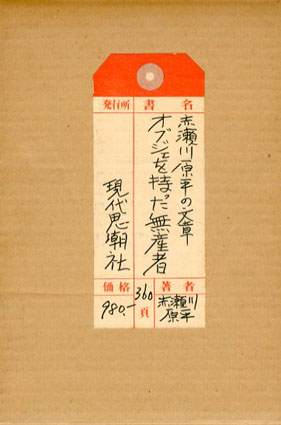 書名
赤瀬川原平の文章
オブジェを持った無産者
発行所
現代思潮社
著者
赤瀬川
原平
360
頁
価格
980.-